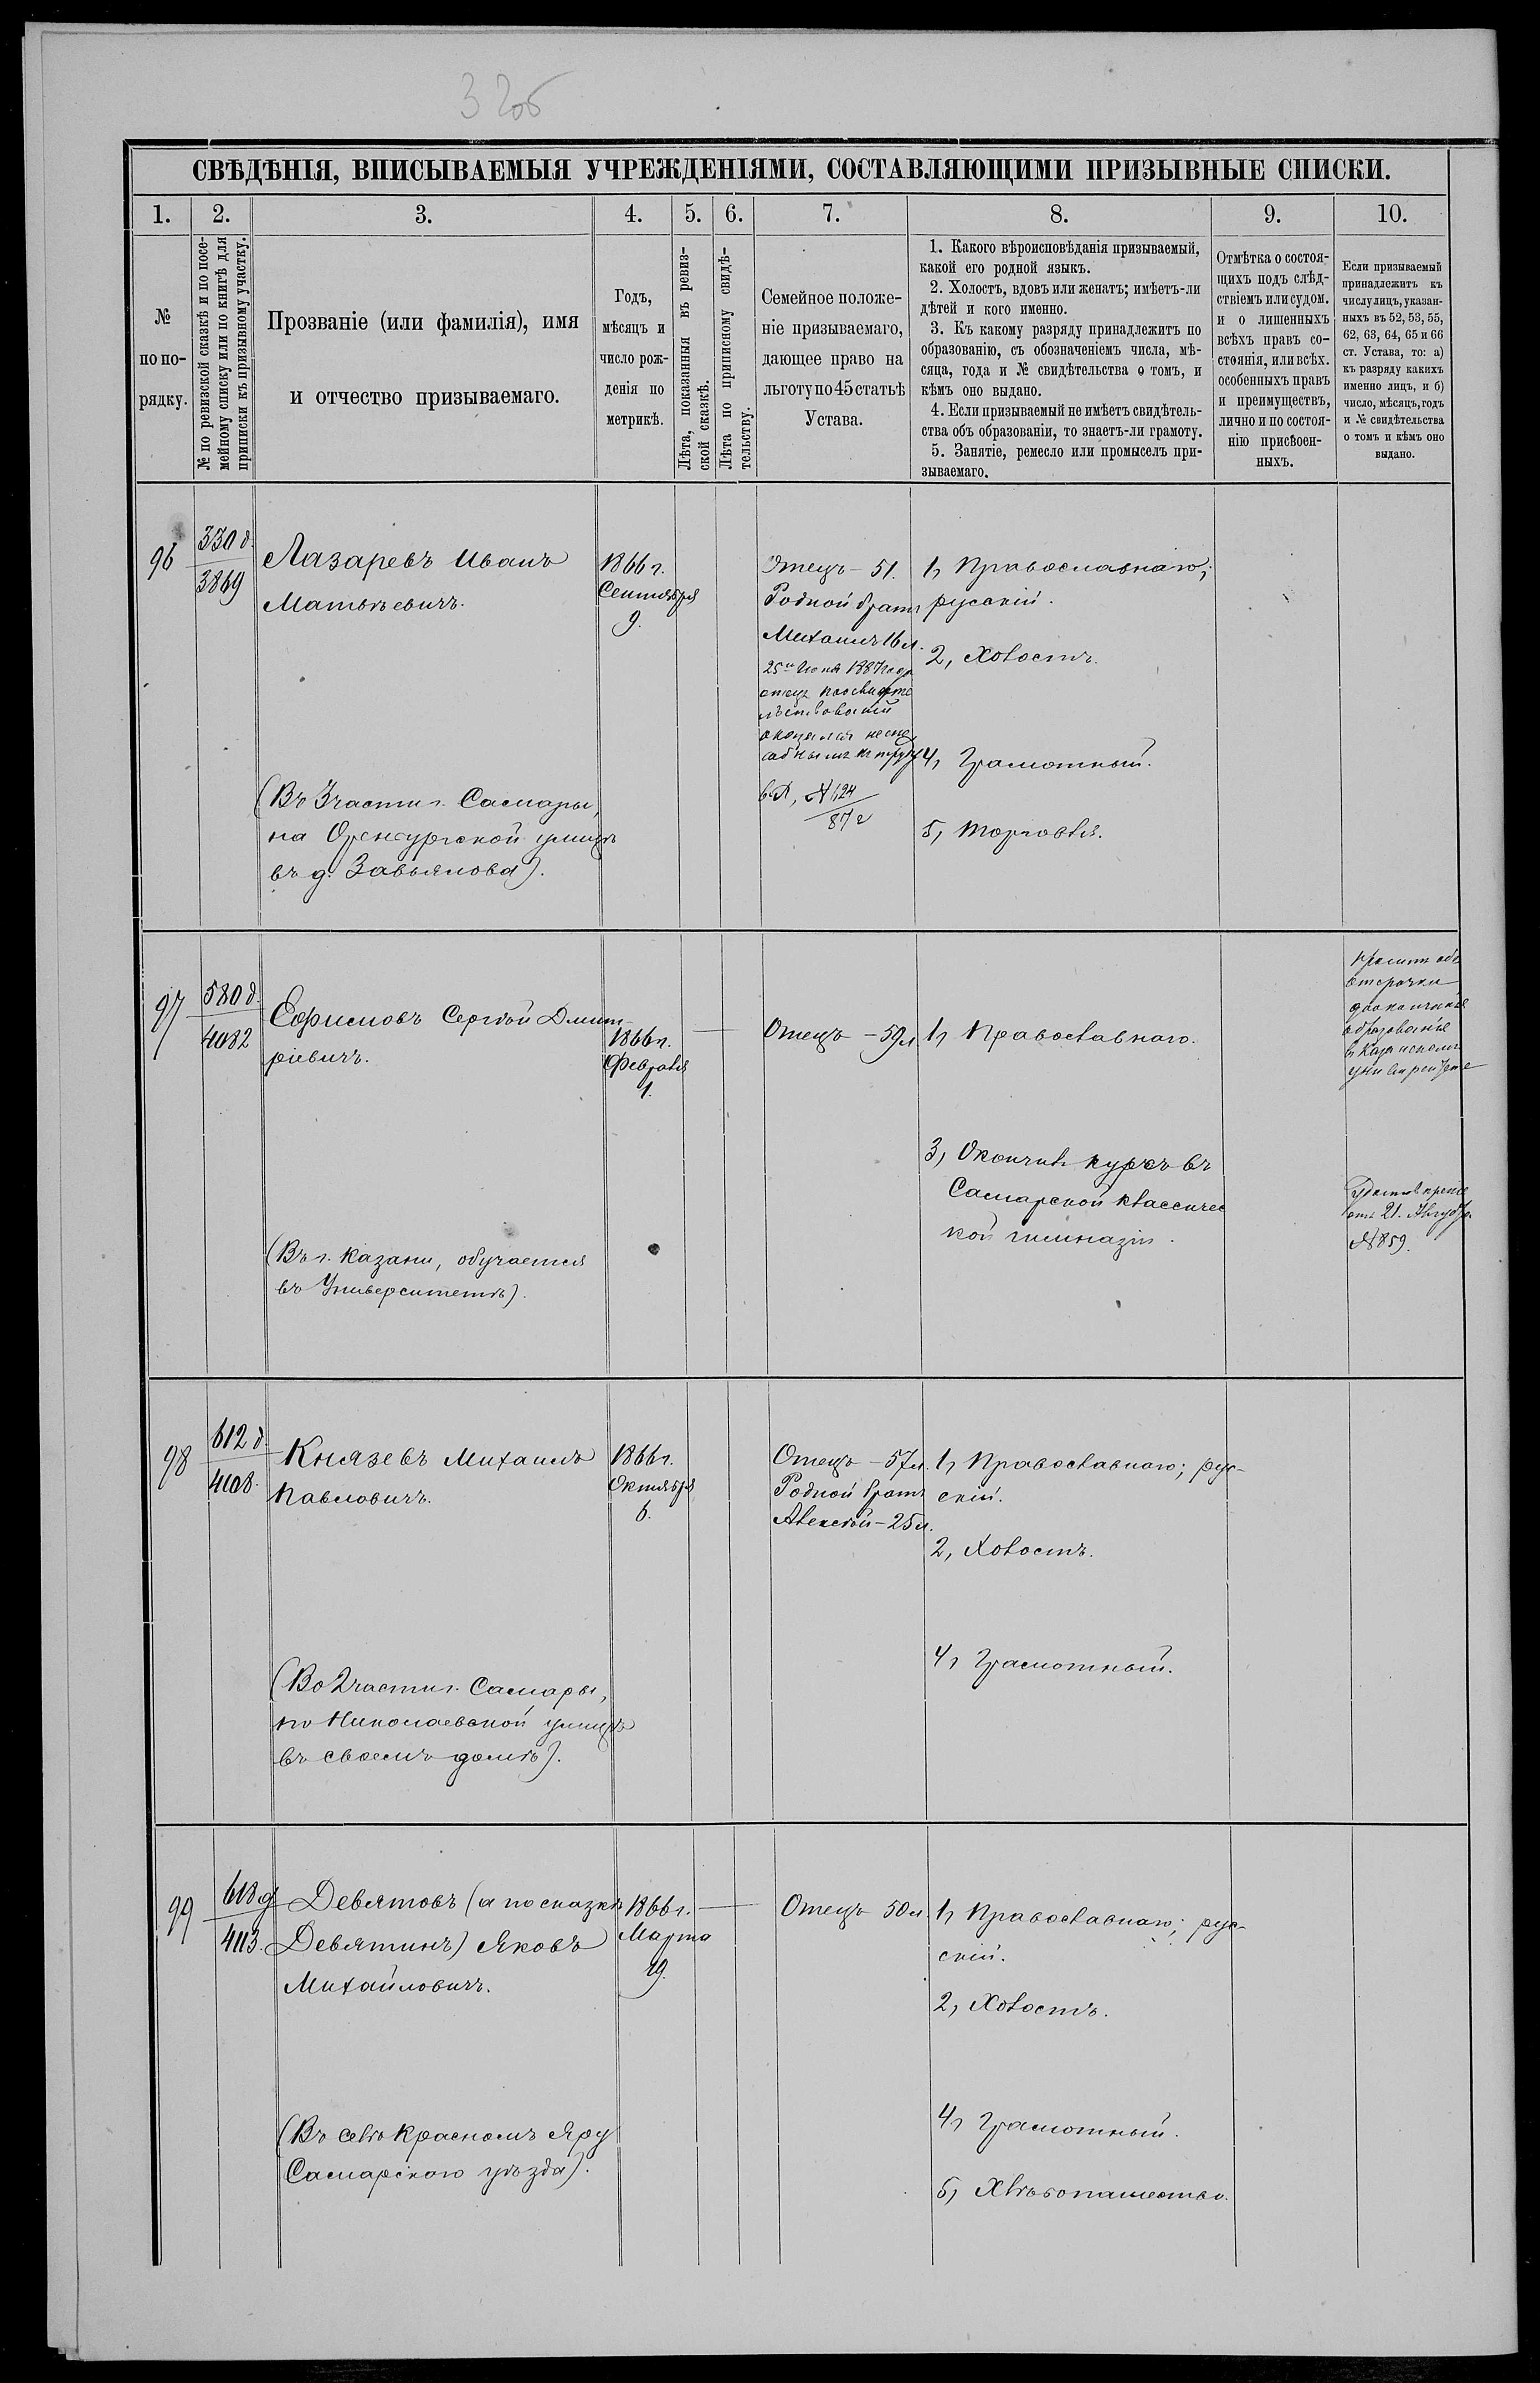 3 2об
СВѢДѢНІЯ, ВПИСЫВАЕМЫЯ УЧРЕЖДЕНІЯМИ, СОСТАВЛЯЮЩИМИ ПРИЗЫВНЫЕ СПИСКИ.
1. 2. 3. 4. 5. 6. 7. 8. 9. 10.
№
по по-
рядку.
№ по ревизской сказкѣ и по посе-
мейному списку или по книгѣ для
приписки къ призывному участку.
Прозваніе (или фамилія), имя
и отчество призываемаго.
Годъ,
мѣсяцъ и
число рож-
денія по
метрикѣ.
Лѣта, показанныя въ ревиз-
ской сказкѣ.
Лѣта по приписному свидѣ-
тельству.
Семейное положе-
ніе призываемаго,
дающее право на
льготу по 45 статьѣ
Устава.
1. Какого вѣроисповѣданія призываемый,
какой его родной языкъ.
2. Холостъ, вдовъ или женатъ; имѣетъ-ли
дѣтей и кого именно.
3. Къ какому разряду принадлежитъ по
образованію, съ обозначеніемъ числа, мѣ-
сяца, года и № свидѣтельства о томъ, и
кѣмъ оно выдано.
4. Если призываемый не имѣетъ свидѣтель-
ства объ образованіи, то знаетъ-ли грамоту.
5. Занятіе, ремесло или промыселъ при-
зываемаго.
Отмѣтка о состоя-
щихъ подъ слѣд-
ствіемъ или судом.
и о лишенныхъ
всѣхъ правъ со-
стоянія, или всѣх.
особенныхъ правъ
и преимуществъ,
лично и по состоя-
нію присвоен-
ныхъ.
Если призываемый
принадлежитъ къ
числу лицъ, указан-
ныхъ въ 52, 53, 55,
62, 63, 64, 65 и 66
ст. Устава, то: а)
къ разряду какихъ
именно лицъ, и б)
число, мѣсяцъ, годъ
и № свидѣтельства
о томъ и кѣмъ оно
выдано.
96
330 д.
3869
Лазаревъ Иванъ
Матвѣевичъ.
(Въ 3 части г. Самары,
на Оренбургской улицѣ
въ д. Завьялова).
1866 г.
Сентября
9.
Отецъ – 51.
Родной братъ
Михаилъ 16 л.
25го Іюня 1887 года
отецъ по освидѣте
льствованіи
оказался неспо
собнымъ къ труду
№ 124
87 г
1, Православнаго;
русскій.
2, Холостъ.
4, Грамотный.
5, Торговля.
97
580 д.
4082
Ефимовъ Сергѣй Дмит-
ріевичъ.
(Въ г. Казани, обучается
въ Университетѣ).
1866 г.
Февраля
1.
Отецъ – 59 л.
1, Православнаго.
3, Окончилъ курсъ въ
Самарской классичес
кой гимназіи.
проситъ объ
отсрочки
образованіе
въ Казанскомъ
университете
отъ 21. Августа
№ 859.
98
612 д.
4108.
Князевъ Михаилъ
Павловичъ.
(Во 2 части г. Самары,
по Николаевской улицѣ
въ своемъ домѣ).
1866 г.
Октября
6.
Отецъ – 57 л.
Родной братъ
Алексѣй – 25 л.
1, Православнаго; рус-
скій.
2, Холостъ.
4, Грамотный.
99
618 д
4113.
Девятовъ (а по сказкѣ
Девятинъ) Яковъ
Михайловичъ.
(Въ селѣ Красномъ Яру
Самарскаго уѣзда).
1866 г.
Марта
19.
Отецъ 50 л.
1, Православнаго; рус-
скій.
2, Холостъ.
4, Грамотный.
5, Хлѣбопашество.